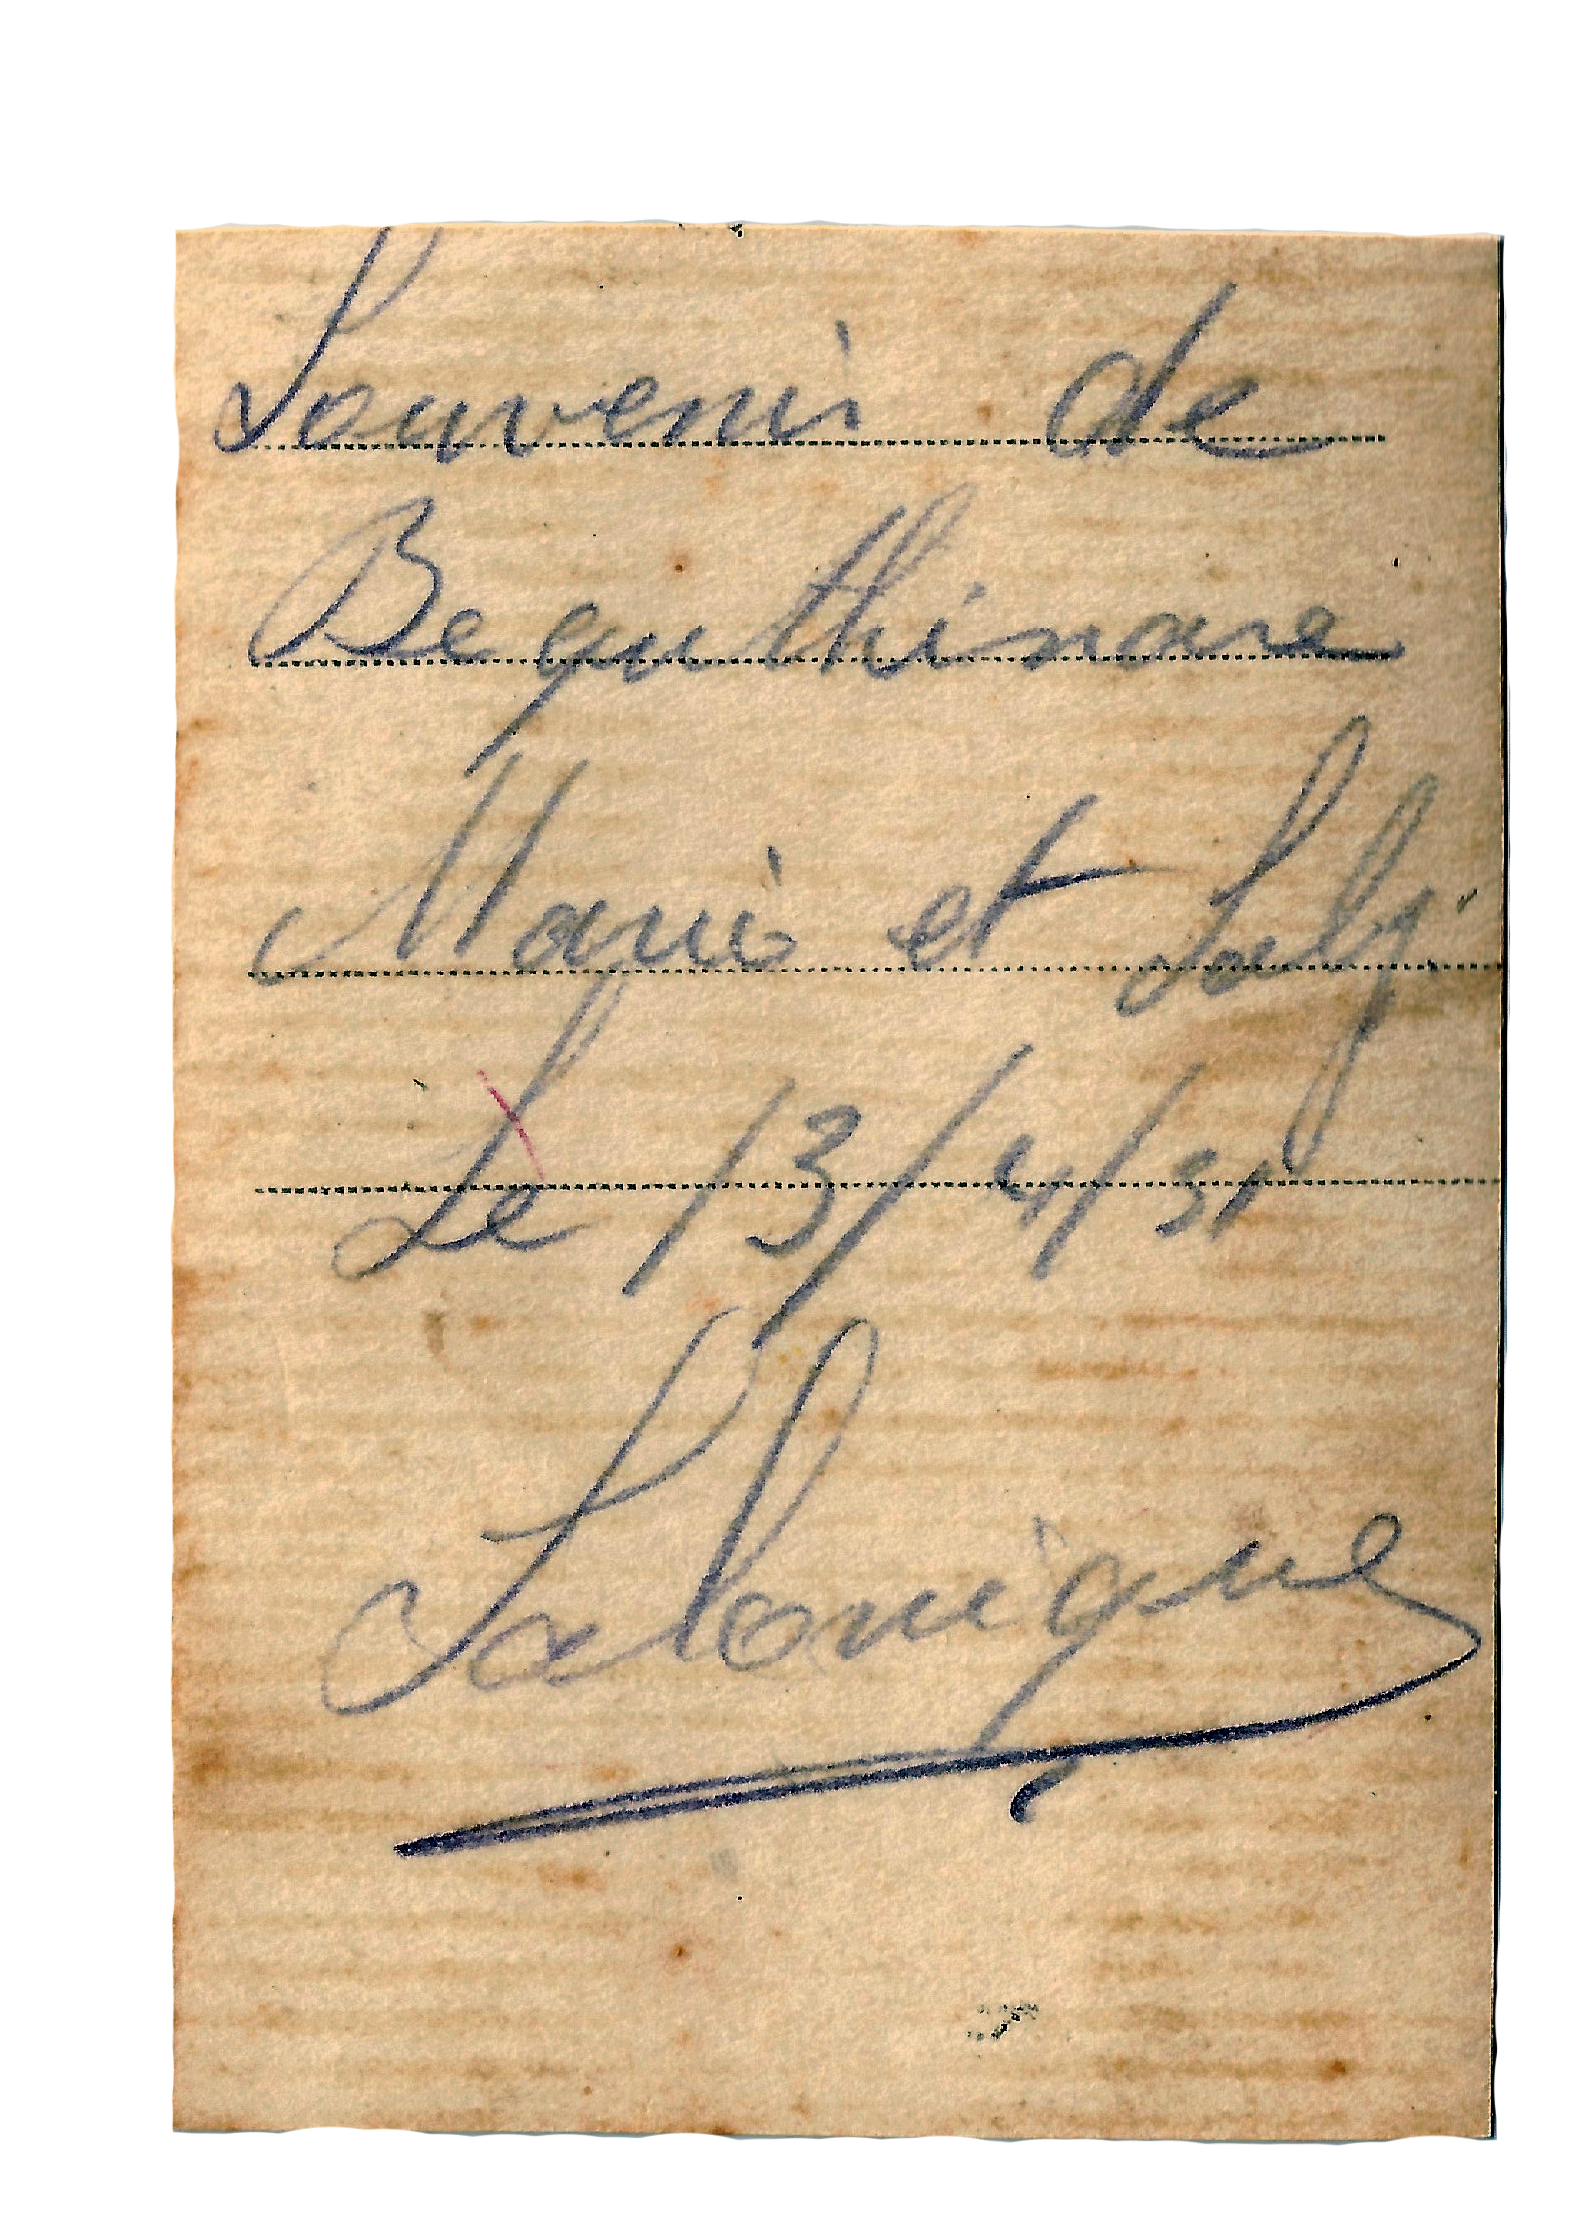 Souvenir de
Bequthinare
Marie et Saly
Le 13/4/31
Salonique